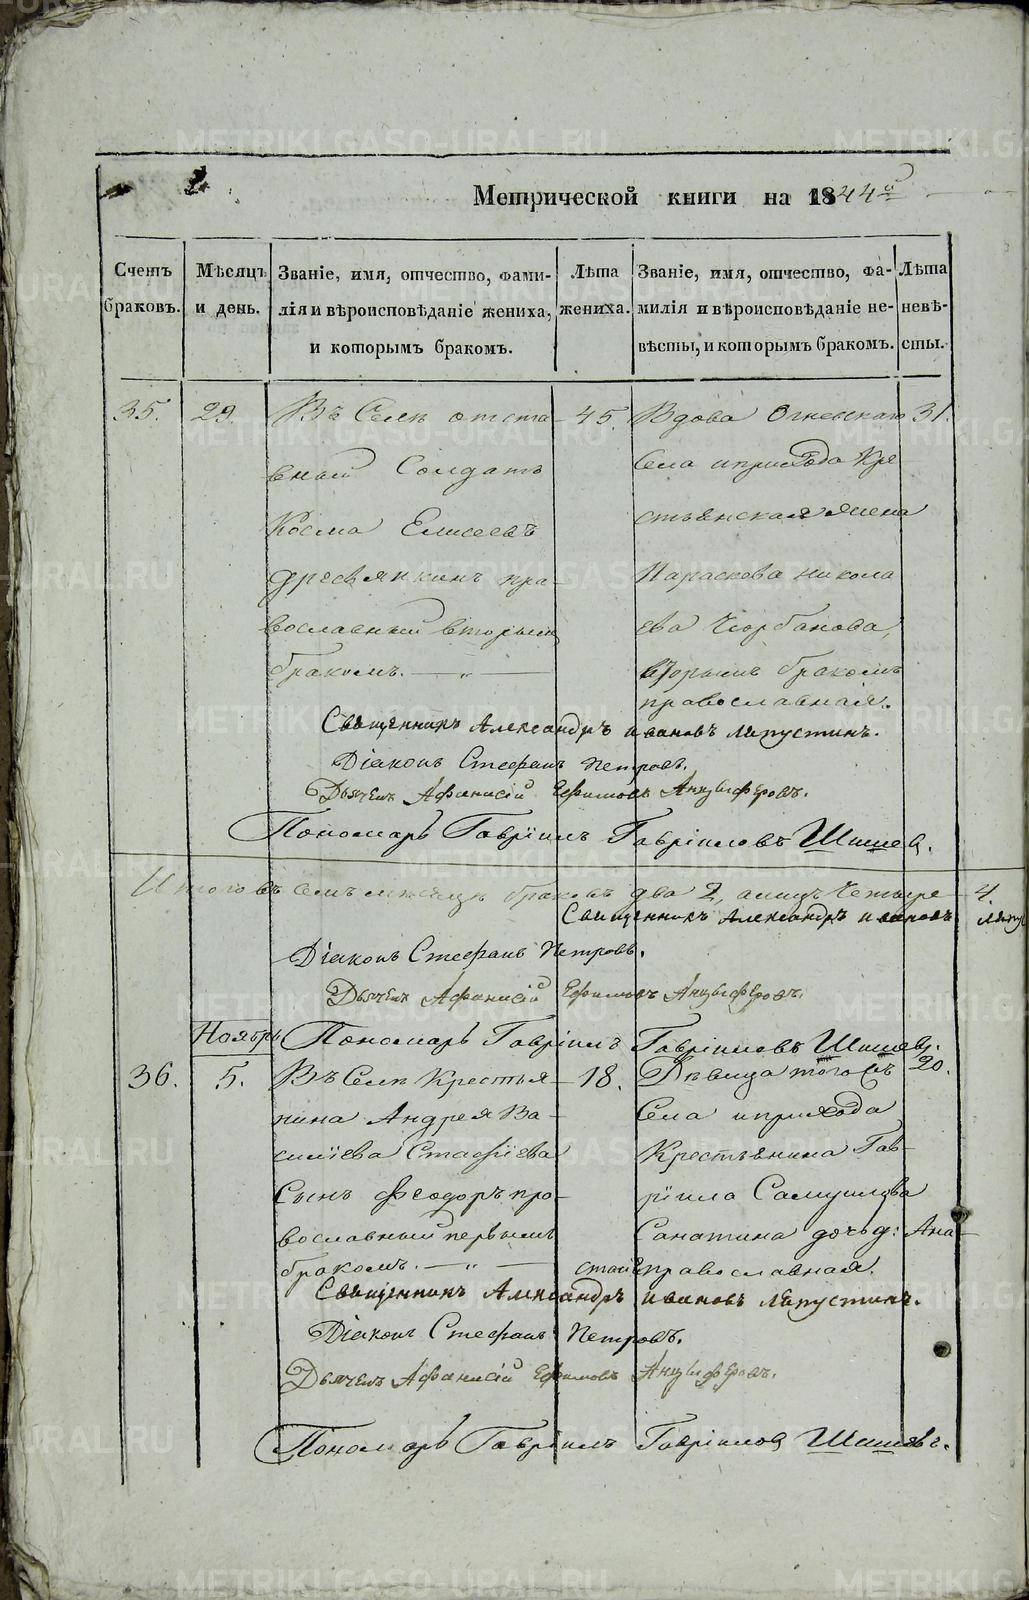 Метрической книги на 1844й
Счетъ браковъ.
Мѣсяцъ и день.
Званіе, имя, отчество, фами-
лія и вѣроисповѣданіе жениха,
и которымъ бракомъ.
Лѣта
жениха.
Званіе, имя, отчество, фа-
милія и вѣроисповѣданіе не-
вѣсты, и которымъ бракомъ.
Лѣта
невѣ-
сты.
35.
29.
Въ Селѣ отста
вный Солдатъ
Косма Елисеевъ
Дресвянкинъ пра-
вославный вторымъ
бракомъ. — „ —
45.
Вдова Огневскаго
Села и прихода Кре
стьянская жена
Параскова Никола
ева Чюрбанова,
вторымъ бракомъ
православная.
31.
Священникъ Александръ Ивановъ Ляпустинъ.
Діаконъ Стефанъ Петровъ.
Дьячекъ Афанисій Ефимовъ Анцыферовъ.
Пономарь Гавріилъ Гавріиловъ Шишевъ.
Итого въ семъ мѣсяцѣ браковъ два 2, а лицъ Четыре — 4.
Священникъ Александръ Ивановъ Ляпу
Діаконъ Стефанъ Петровъ.
Дьячекъ Афанисій Ефимовъ Анцыферовъ.
Ноябрь
Пономарь Гавріилъ Гавріиловъ Шишевъ.
36.
5.
Въ Селѣ Крестья-
нина Андрея Ва-
силіева Стафіева
Сынъ Феодоръ пра-
вославный первымъ
бракомъ. — „ —
18.
Дѣвица того Съ
Села и прихода
Крестьянина Гав-
ріила Самуилова
Санатина дочь д: Ана-
стасія православная.
20.
Священникъ Александръ Ивановъ Ляпустинъ.
Діаконъ Стефанъ Петровъ.
Дьячекъ Афанисій Ефимовъ Анцыферовъ.
Пономарь Гавріилъ Гавріиловъ Шишевъ.
METRIKI.GASO-URAL.RU